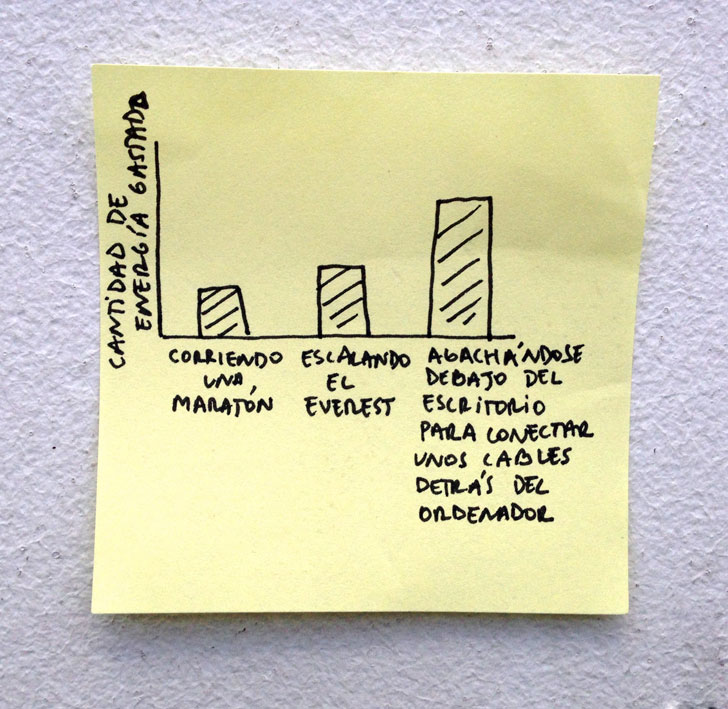 CANTIDAD DE
ENERGÍA GASTADA
CORRIENDO
UNA
MARATÓN
ESCALANDO
EL
EVEREST
AGACHÁNDOSE
DEBAJO DEL
ESCRITORIO
PARA CONECTAR
UNOS CABLES
DETRÁS DEL
ORDENADOR